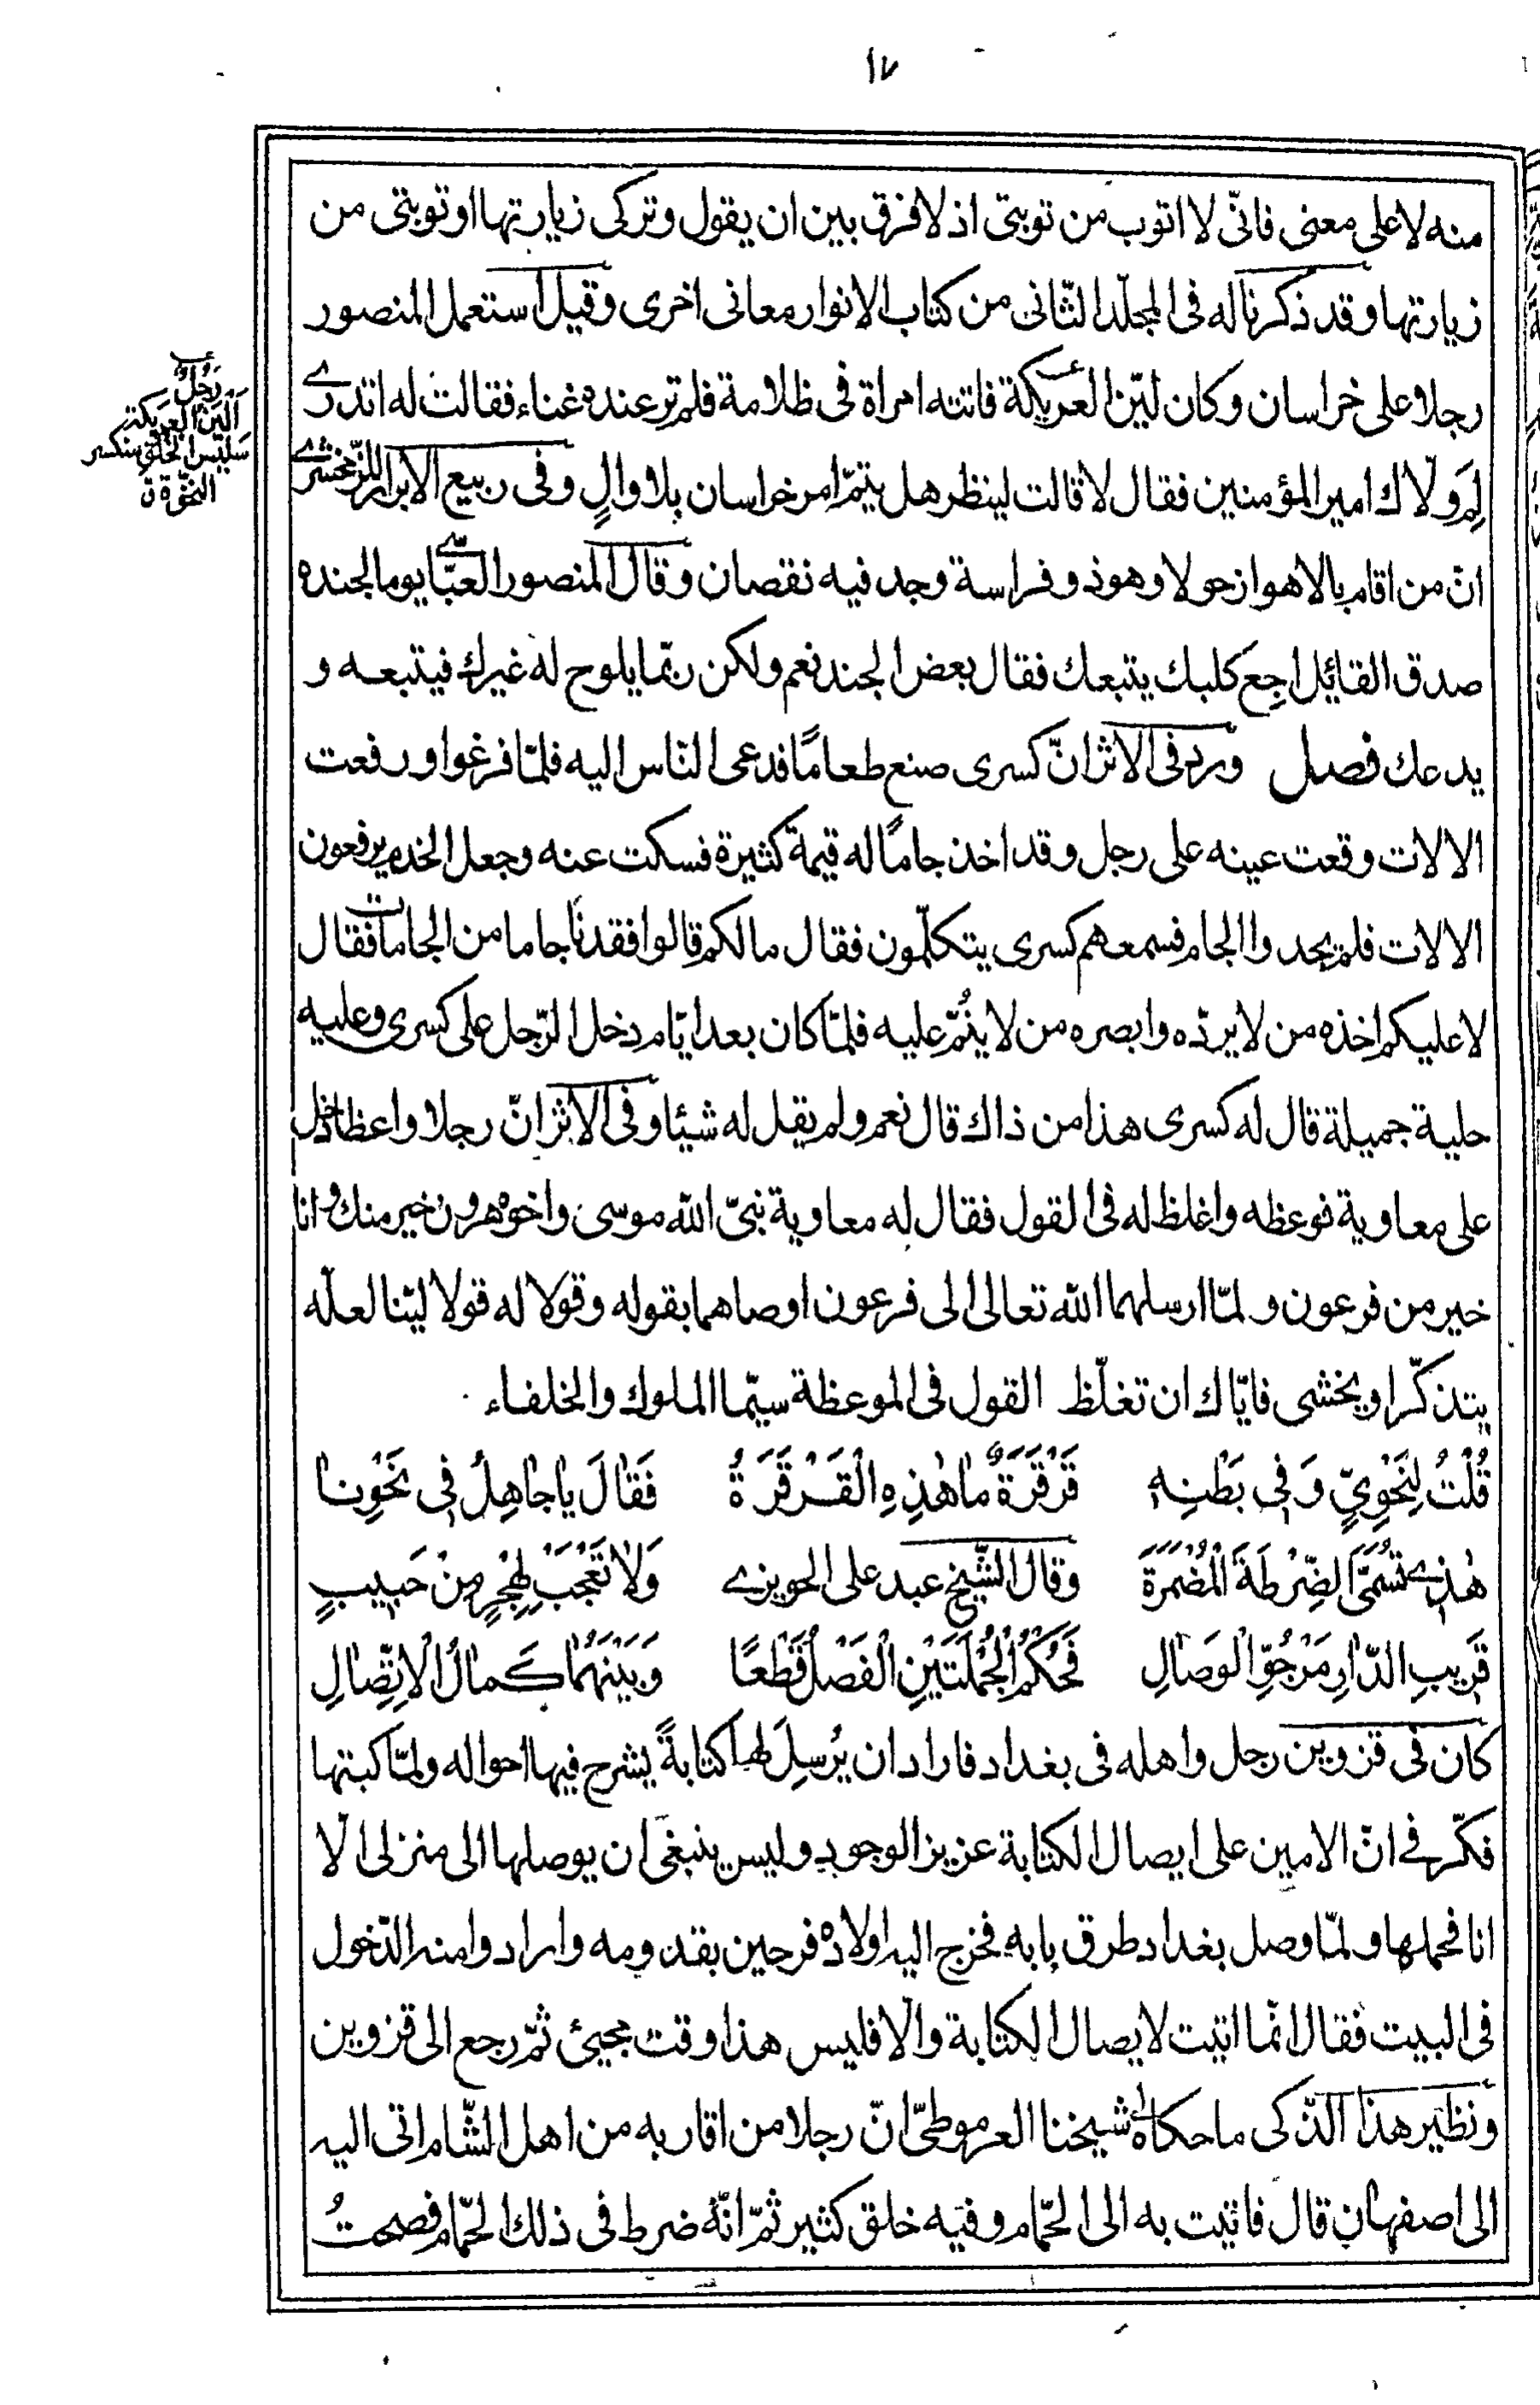 ١٧
منه لا على معنى فانّى لا اتوب من توبتى اذ لا فرق بين ان يقول وتركى زيارتها او توبتى من
زيارتها وقد ذكرنا له فى المجلّد الثّانى من كتاب الانوار معانى اخرى وقيل استعمل المنصور
رجلا على خراسان وكان ليّن العريكة فاتته امراة فى ظلامة فلم تر عنده غناء فقالت له اتدرى
لِمَ ولّاك امير المؤمنين فقال لا قالت لينظر هل يتمّ امر خراسان بلا والٍ وفى ربيع الابرار للزّمخشرى
انّ من اقام بالاهواز حولا وهو ذو فراسة وجد فيه نقصان وقال المنصور العبّاسى يوما لجنده
صدق القائل اجع كلبك يتبعك فقال بعض الجند نعم ولكن ربّما يلوح له غيرك فيتبعه و
يدعك فصل ورد فى الاثر انّ كسرى صنع طعامًا فدعى النّاس اليه فلمّا فرغوا ورفعت
الالات وقعت عينه على رجل وقد اخذ جامًا له قيمة كثيرة فسكت عنه وجعل الخدم يرفعون
الالات فلم يجدوا الجام فسمعهم كسرى يتكلّمون فقال مالكم قالوا فقدنا جاما من الجامات فقال
لا عليكم اخذه من لا يردّه وابصره من لا ينُمّ عليه فلمّا كان بعد ايّام دخل الرّجل على كسرى وعليه
حلية جميلة قال له كسرى هذا من ذاك قال نعم ولم يقل له شيئا وفى الاثر انّ رجلا واعظا دخل
على معاوية فوعظه واغلظ له فى القول فقال له معاوية نبىّ الله موسى واخوه هرون خير منك وانا
خير من فرعون ولمّا ارسلهما الله تعالى الى فرعون اوصاهما بقوله وقولا له قولا ليّنا لعلّه
يتذكّر او يخشى فايّاك ان تغلّظ القول فى الموعظة سيّما الملوك والخلفاء
قُلْتُ لِنَحْوِيٍّ وَفِى بَطْنِهِ قَرْقَرَةٌ مَا هٰذِهِ الْقَرْقَرَةُ فَقَالَ يَا جَاهِلُ فِى نَحْوِنَا
هٰذِى تُسَمَّى الضِّرْطَةَ الْمُضْمَرَةَ وقال الشّيخ عبد على الحويزى وَلَا تَعْجَبْ لِهَجْرٍ مِنْ حَبِيبٍ
قَرِيبِ الدّارِ مَرْجُوِّ الْوَصَالِ فَحُكْمُ الْجُمْلَتَيْنِ الْفَصْلُ قَطْعًا وَبَيْنَهُمَا كَمَالُ الْاِتِّصَالِ
كان فى قزوين رجل واهله فى بغداد فاراد ان يُرسِلَ لها كتابةً يشرح فيها احواله ولمّا كتبتها
فكّر فى انّ الامين على ايصال الكتابة عزيز الوجود وليس ينبغى ان يوصلها الى منزلى الّا
انا فحملها ولمّا وصل بغداد طرق بابه فخرج اليه اولاده فرحين بقدومه وارادوا منه الدّخول
فى البيت فقال انّما اتيت لايصال الكتابة والّا فليس هذا وقت مجيئ ثمّ رجع الى قزوين
ونظير هذا الذّكى ما حكاه لى شيخنا العرموطىّ انّ رجلا من اقاربه من اهل الشّام اتى اليه
الى اصفهان قال فاتيت به الى الحمّام وفيه خلق كثير ثمّ انّه ضرط فى ذلك الحمّام فصحتُ
رَجُلٌ
لَيّنُ العَرِيكَةِ
سَلِيسُ الخُلُقِ منكسر
النخوة ق